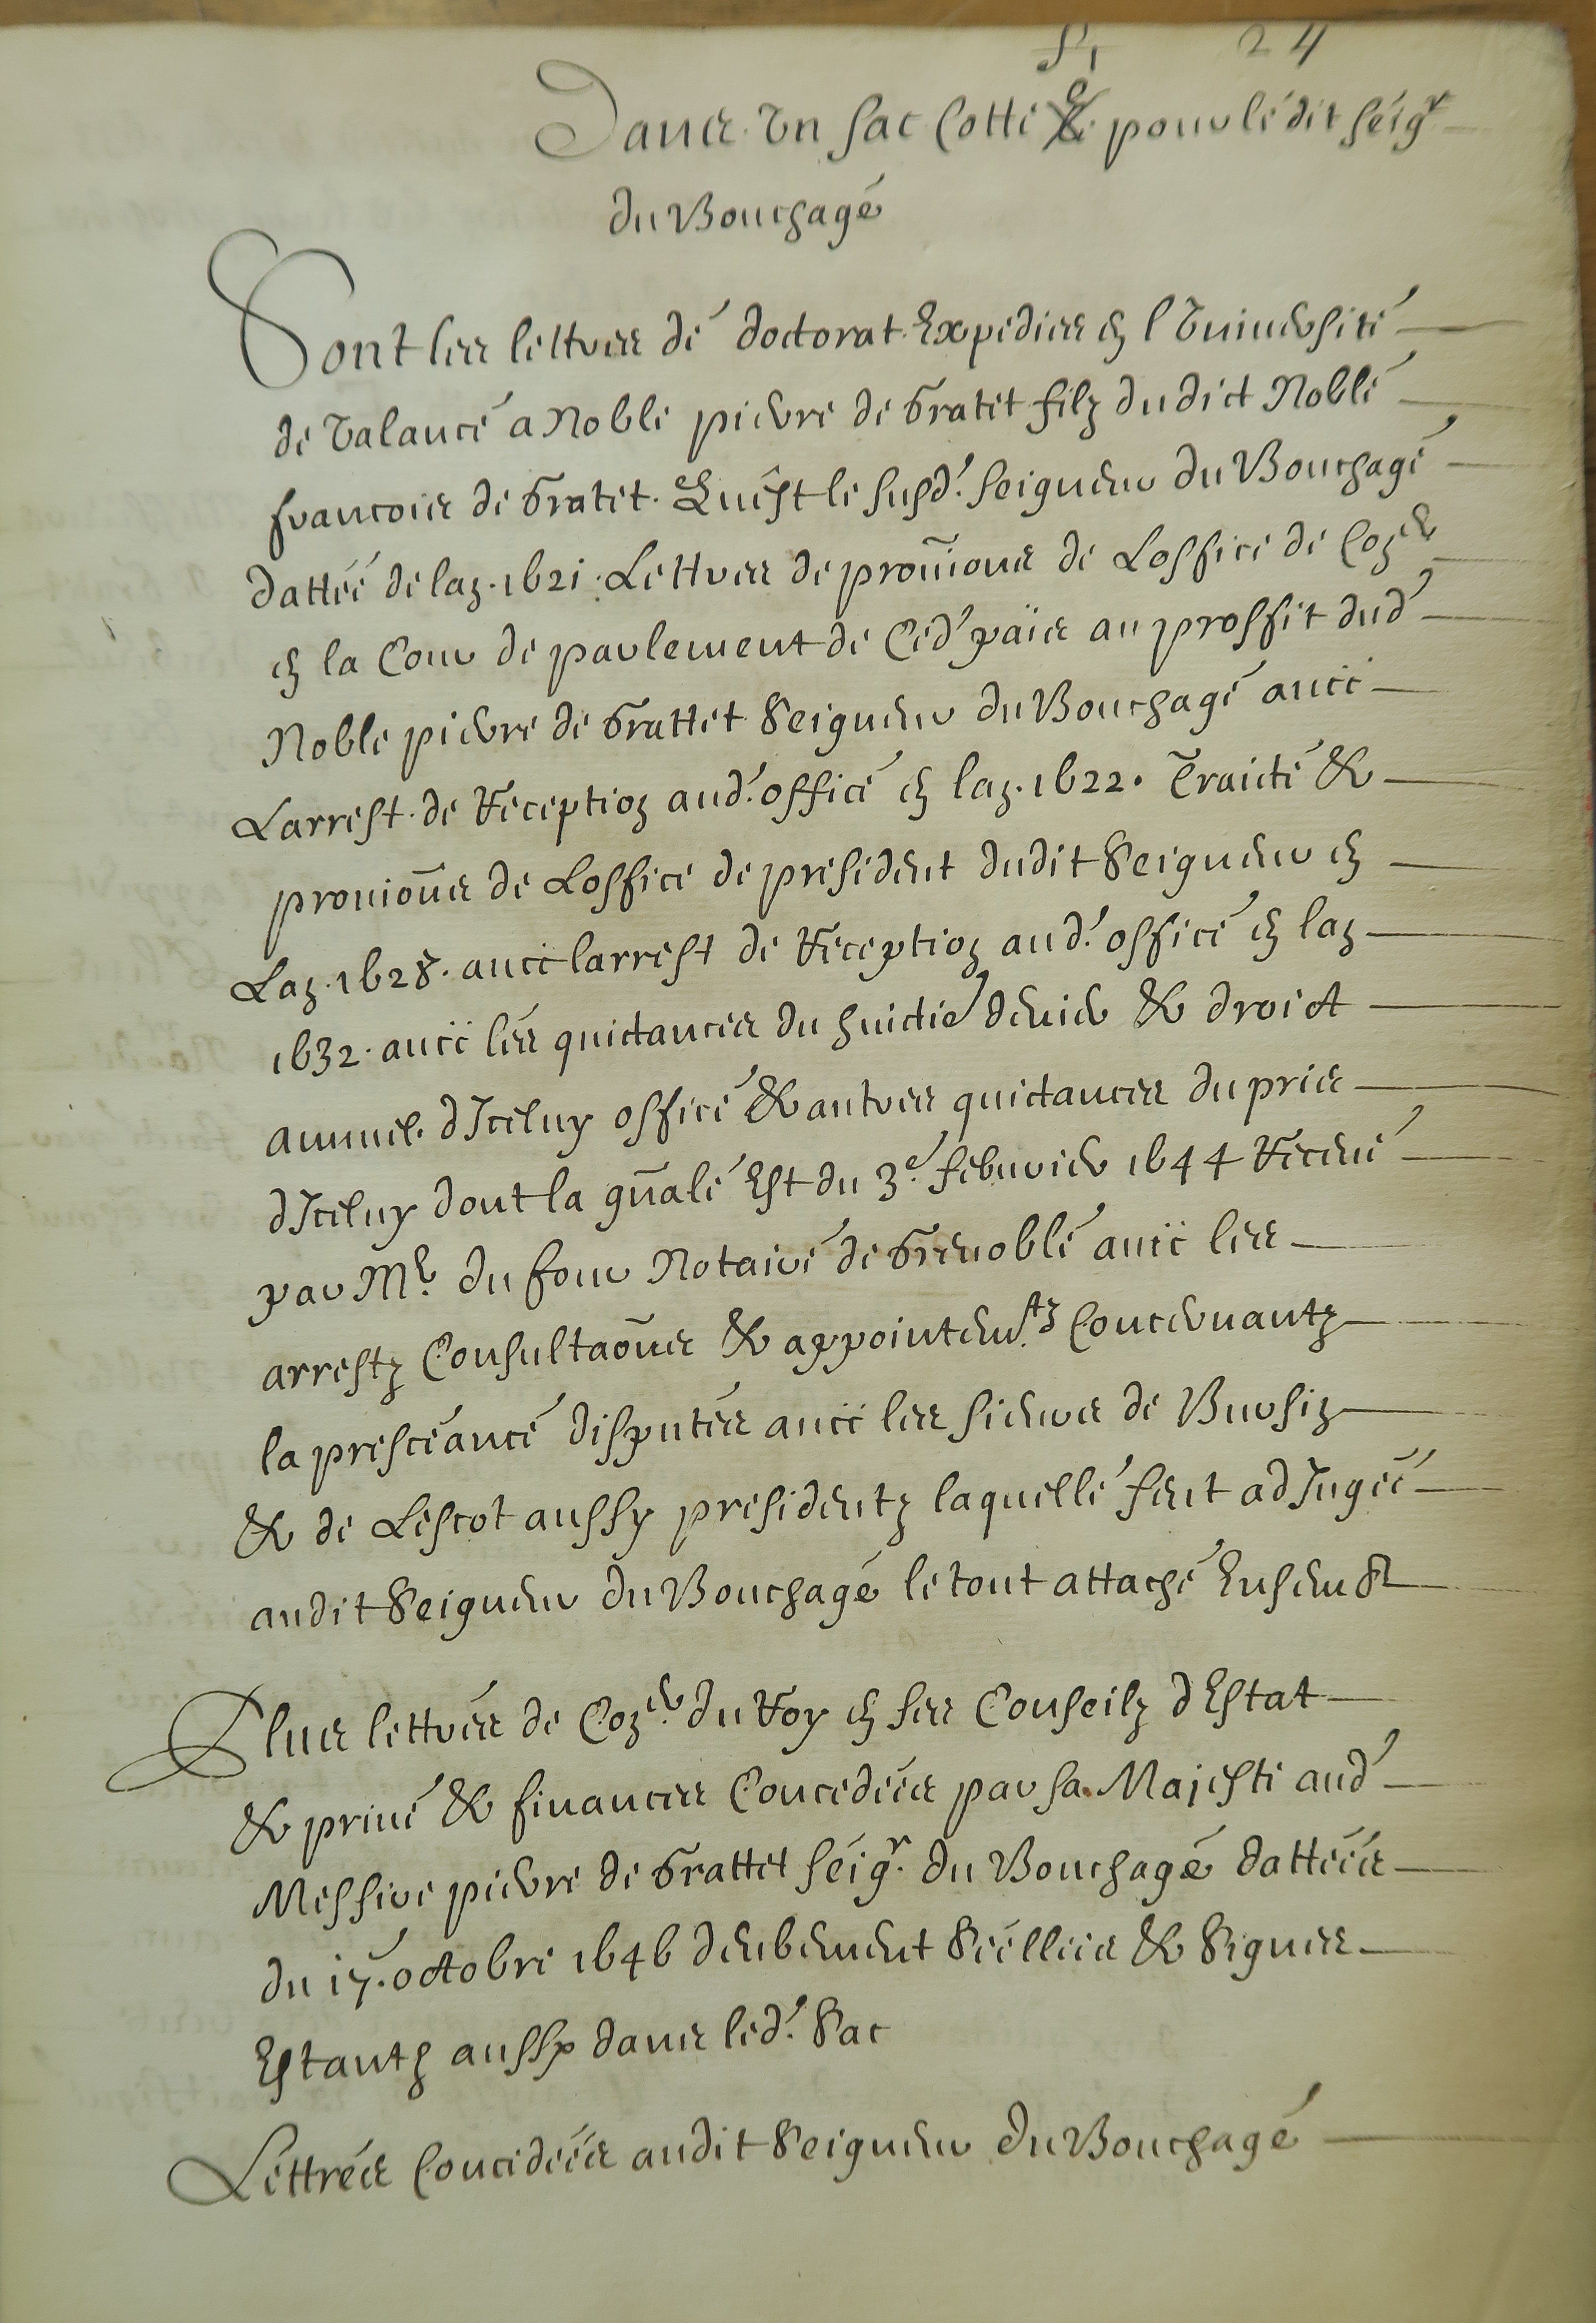 24
Dans vn sac Cotté pour lédit séigr
du Bouchagé
Sont les lettres dé doctorat Expedies en l Vniuersité
de Valancé a Noble pierre de Gratet filz dudict Noblé
francois de Gratet. Quést le susd. seigneur du Bouchagé
dattéé de lan. 1621. Lettres de prouions de Loffice de Coner
en la Cour de parlement de Céd païs au proffit dud
Noble pierre de Grattet Seigneur du Bouchagé aucc
Larrest de Reception aud. officé en lan. 1622. Traicté &
prouions de Loffice de president dudit Seigneur en
Lan. 1628. aucc larrest de Reception aud. officé en lan
1632. aucc lés quictances du huictié denier & droict
annuel dIceluy officé & autres quictances du pris
dIceluy dont la gnalé Est du 3e. feburier 1644 Receué
par Mr. du four Notairé de Grenoblé aucc les
arrestz Consultaons & appointemtz Concernantz
la prescéancé disputées aucc les sieurs de Bursin
& de Lescot aussy presidentz laquellé feut adJugéé
audit Seigneur du Bouchagé le tout attaché Ensembl
Plus lettrés de Coner. du Roy en ses Conseilz dEstat
& priué & financés Concedéés par sa Majesté aud
Messire pierre de Grattet séigr. du Bouchagé dattéés
du 17. octobre 1646 deubement Scéllées & Signes
Estantz aussy dans léd. Sac
Lettrés Concédéés audit Seigneur du Bouchagé